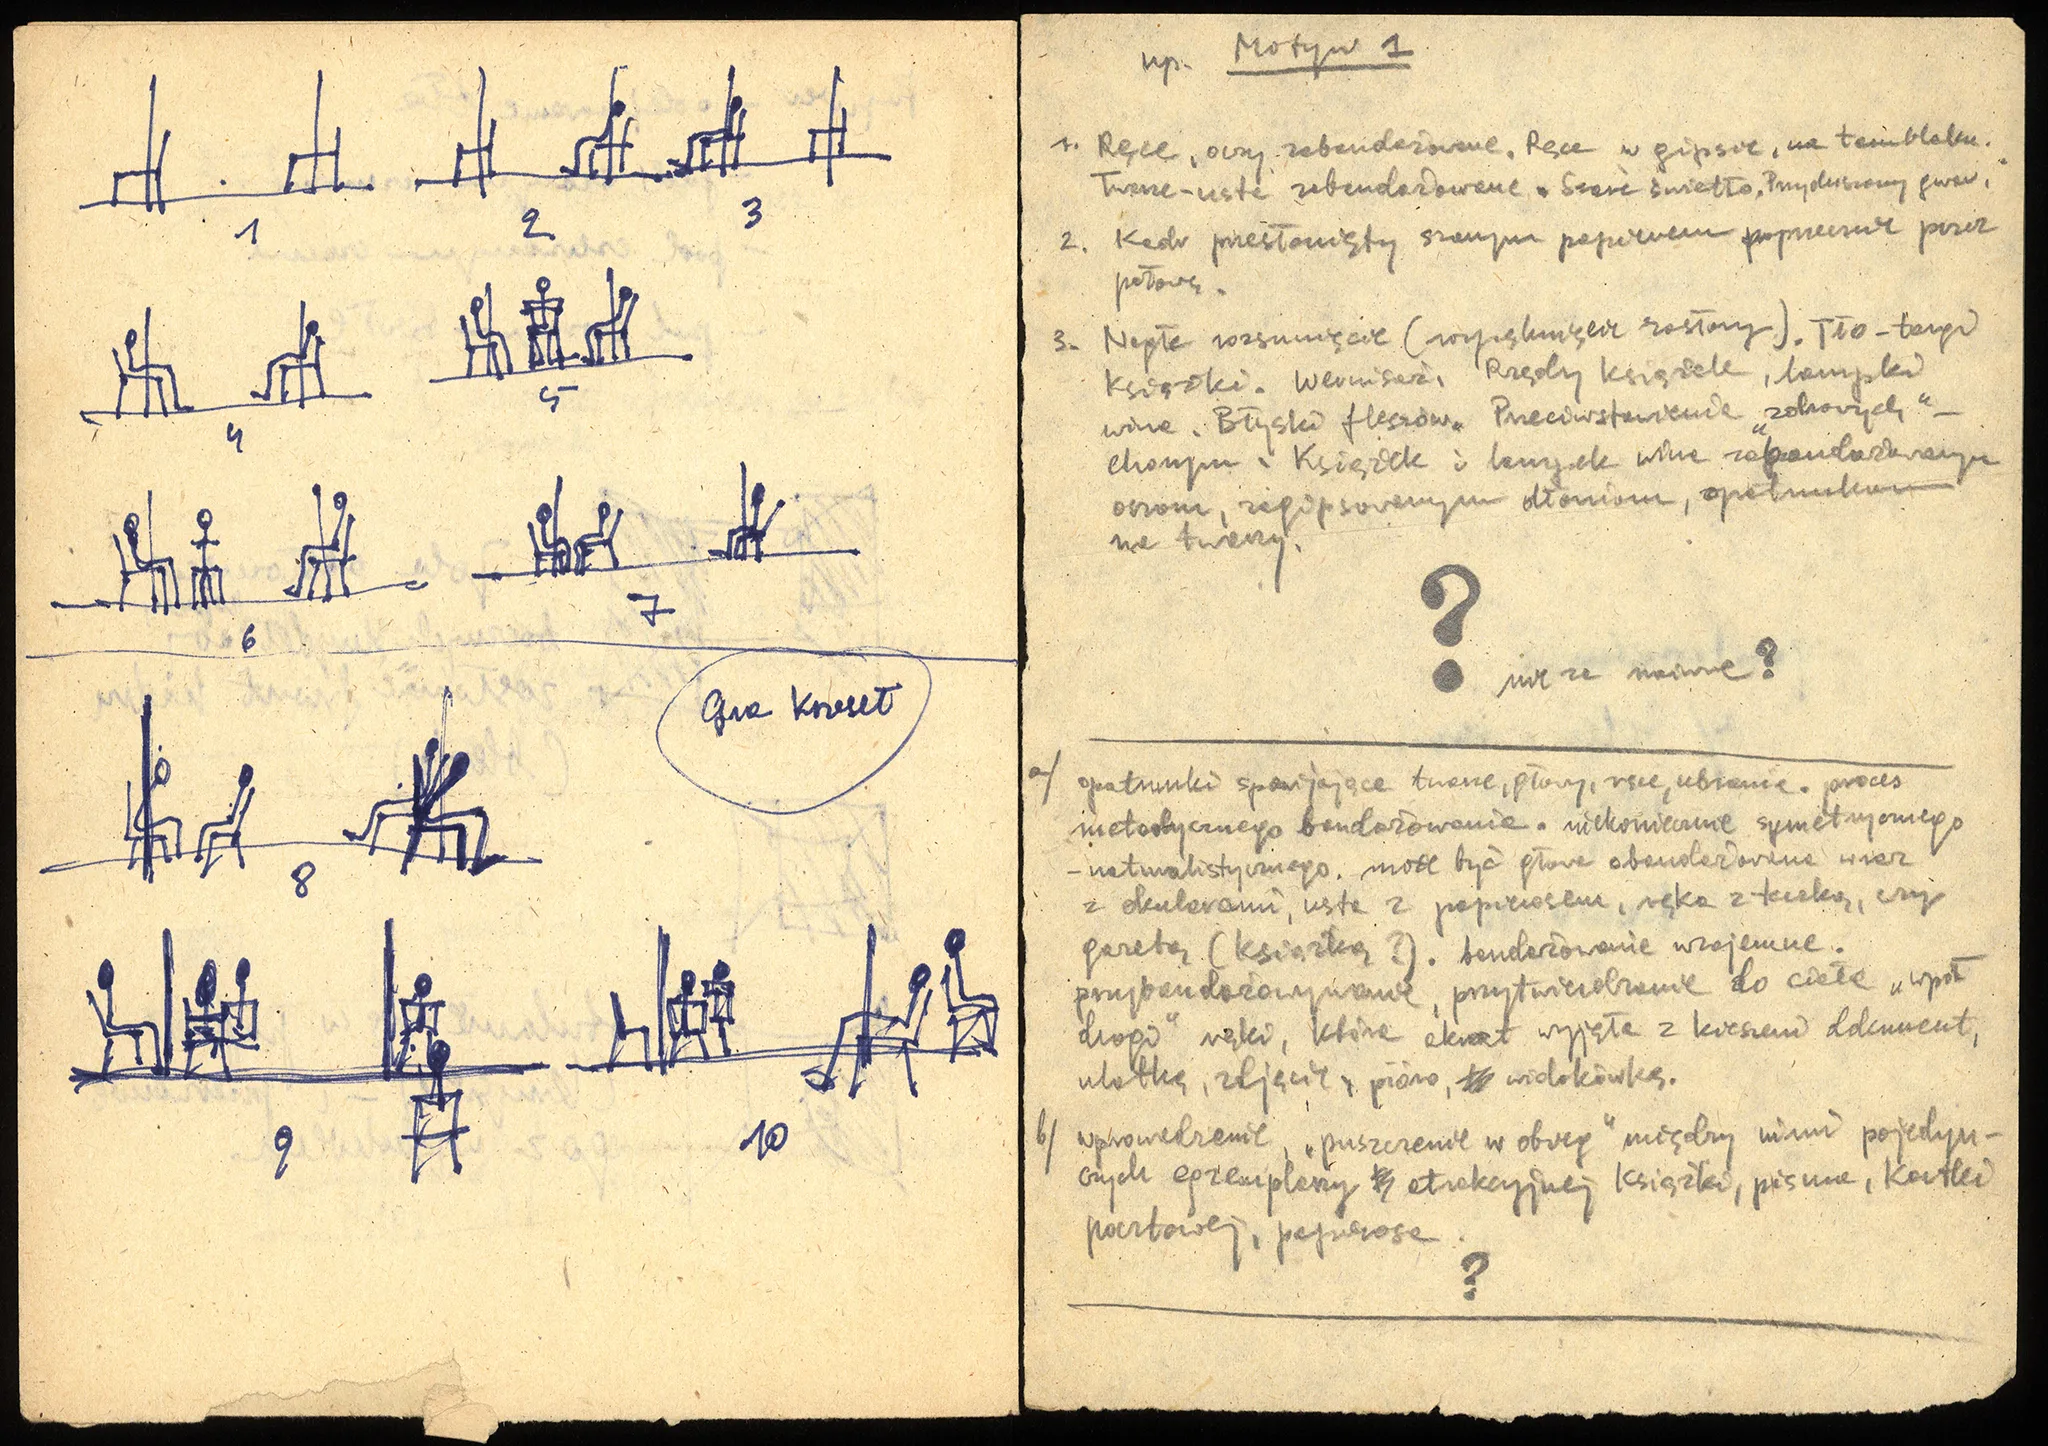 1
2
3
4
5
6
7
Gra krzeseł
8
9
10
np. Motyw 1
1. Ręce, oczy zabandażowane. Ręce w gipsie, na temblaku.
Twarze-usta zabandażowane. Szare światło. Przyduszony gwar.
2. Kadr przesłonięty szarym papierem poprzecznie przez
połowę.
3. Nagłe rozsunięcie (wypęknięcie zasłony). Tło-targi
książki. Wernisaż. Rzędy książek, lampki
wina. Błyski fleszów. Przeciwstawienie „zdrowych"-
chorym. Książek i lampek wina zabandażowanym
oczom, zagipsowanym dłoniom, opatrunkom
na twarzy.
?
nie za naiwne?
a/ opatrunki spowijające twarze, głowy, ręce, ubrania. proces
metodycznego bandażowania. niekoniecznie symetrycznego
-naturalistycznego. może być głowa obandażowana wraz
z okularami, usta z papierosem, ręka z teczką, czy
gazetą (książką?). bandażowanie wzajemne.
przybandażowywanie, przytwierdzanie do ciała „wpół
drogi" ręki, która akurat wyjęła z kieszeni dokument,
ulotkę, zdjęcie, pióro, widokówkę.
b/ wprowadzenie, „puszczenie w obieg" między nimi pojedyn-
czych egzemplarzy atrakcyjnej książki, pisma, kartki
pocztowej, papierosa.
?